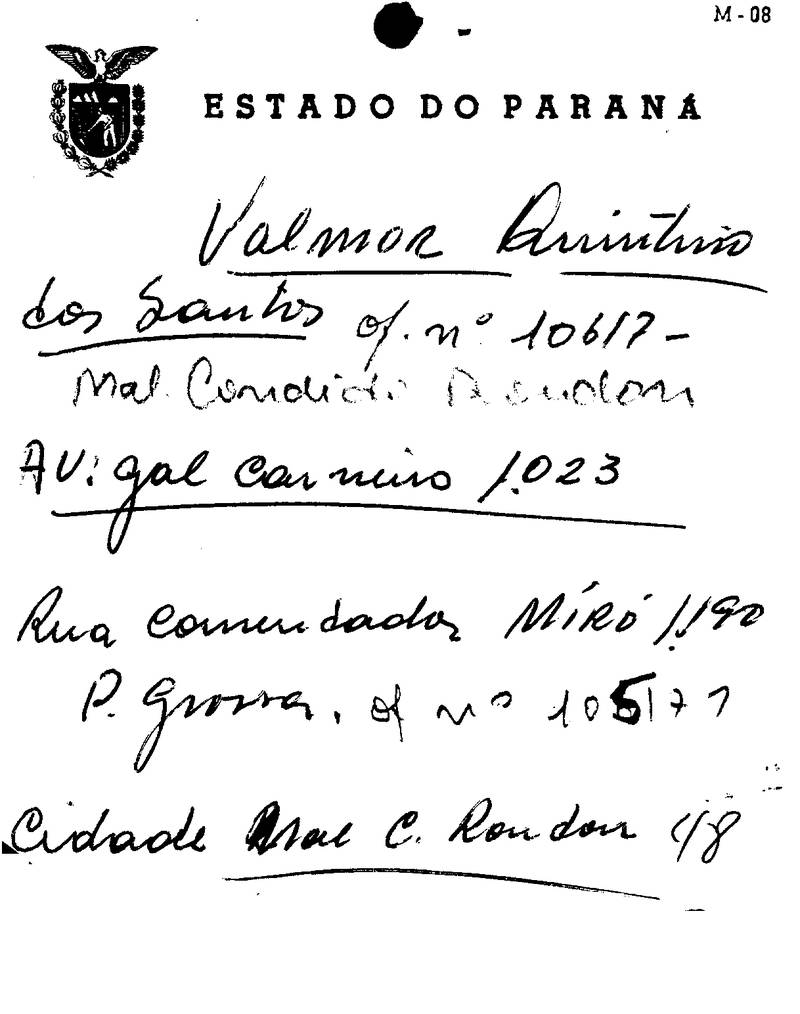 M - 08
ESTADO DO PARANÁ
Valmor Quintino
dos Santos of. nº 106/7-
Mal. Candido Rondon
AV: gal Carneiro 1.023
Rua comendador MÍRÓ 1.190
P. Grossa. of nº 105/77
Cidade Mal C. Rondon